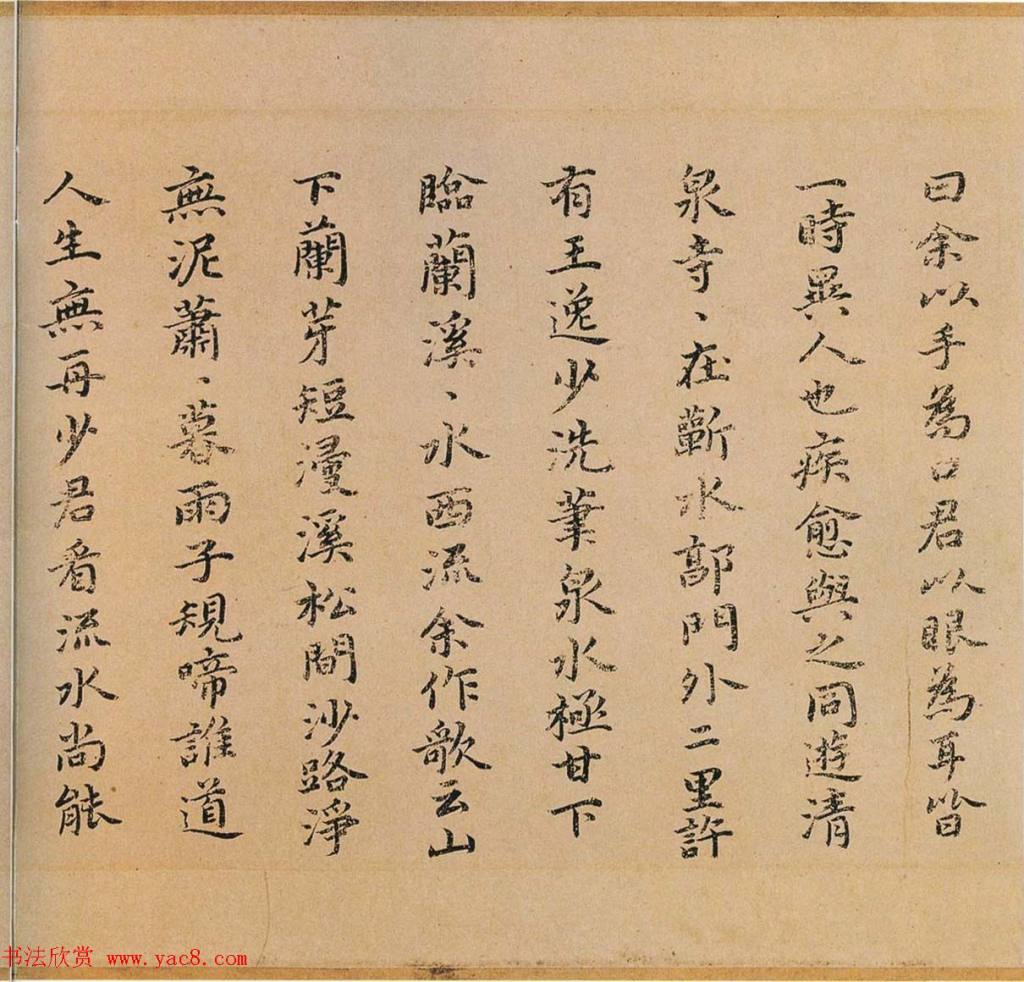 曰余以手為口君以眼為耳皆
一時異人也疾愈與之同遊清
泉寺、在蘄水郭門外二里許
有王逸少洗筆泉水極甘下
臨蘭溪、水西流余作歌云山
下蘭芽短溪松間沙路淨
無泥蕭、暮雨子規啼誰道
人生無再少君看流水尚能
书法欣赏 www.yac8.com